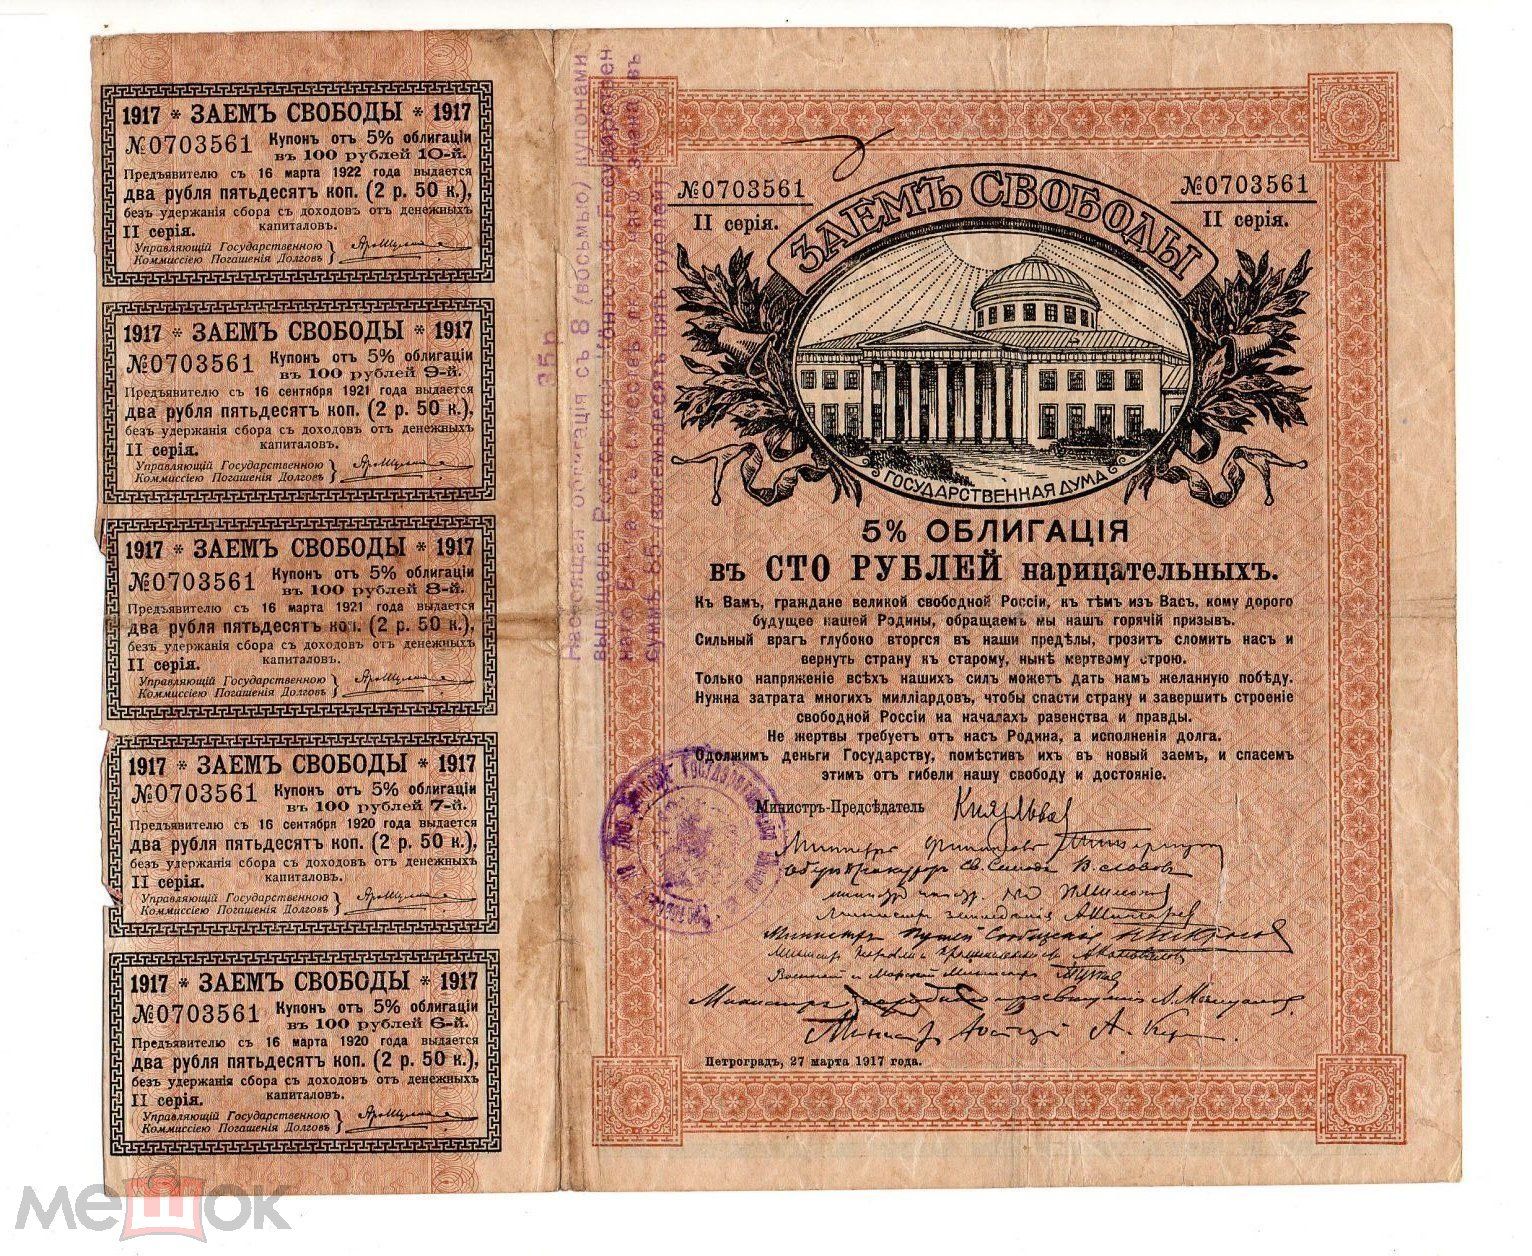 1917 * ЗАЕМЪ СВОБОДЫ * 1917
№0703561 Купонъ отъ 5% облигаціи
въ 100 рублей 10-й.
Предъявителю съ 16 марта 1922 года выдается
два рубля пятьдесятъ коп. (2 р. 50 к.),
безъ удержанія сбора съ доходовъ отъ денежныхъ
II серія. капиталовъ.
Управляющій Государственною
Коммиссіею Погашенія Долговъ
1917 * ЗАЕМЪ СВОБОДЫ * 1917
№0703561 Купонъ отъ 5% облигаціи
въ 100 рублей 9-й.
Предъявителю съ 16 сентября 1921 года выдается
два рубля пятьдесятъ коп. (2 р. 50 к.),
безъ удержанія сбора съ доходовъ отъ денежныхъ
II серія. капиталовъ.
Управляющій Государственною
Коммиссіею Погашенія Долговъ
1917 * ЗАЕМЪ СВОБОДЫ * 1917
№0703561 Купонъ отъ 5% облигаціи
въ 100 рублей 8-й.
Предъявителю съ 16 марта 1921 года выдается
два рубля пятьдесятъ коп. (2 р. 50 к.),
безъ удержанія сбора съ доходовъ отъ денежныхъ
II серія. капиталовъ.
Управляющій Государственною
Коммиссіею Погашенія Долговъ
1917 * ЗАЕМЪ СВОБОДЫ * 1917
№0703561 Купонъ отъ 5% облигаціи
въ 100 рублей 7-й.
Предъявителю съ 16 сентября 1920 года выдается
два рубля пятьдесятъ коп. (2 р. 50 к.),
безъ удержанія сбора съ доходовъ отъ денежныхъ
II серія. капиталовъ.
Управляющій Государственною
Коммиссіею Погашенія Долговъ
1917 * ЗАЕМЪ СВОБОДЫ * 1917
№0703561 Купонъ отъ 5% облигаціи
въ 100 рублей 6-й.
Предъявителю съ 16 марта 1920 года выдается
два рубля пятьдесятъ коп. (2 р. 50 к.),
безъ удержанія сбора съ доходовъ отъ денежныхъ
II серія. капиталовъ.
Управляющій Государственною
Коммиссіею Погашенія Долговъ
облигація съ 8 (восьмью) купонами
выпущена
сумм 85 (восемьдесять пять рублей)
№0703561
II серія.
ЗАЕМЪ СВОБОДЫ
№0703561
II серія.
ГОСУДАРСТВЕННАЯ ДУМА
5% ОБЛИГАЦІЯ
въ СТО РУБЛЕЙ нарицательныхъ.
Къ Вамъ, граждане великой свободной Россіи, къ тѣмъ изъ Васъ, кому дорого
будущее нашей Родины, обращаемъ мы нашъ горячій призывъ.
Сильный врагъ глубоко вторгся въ наши предѣлы, грозитъ сломить насъ и
вернуть страну къ старому, нынѣ мертвому строю.
Только напряженіе всѣхъ нашихъ силъ можетъ дать намъ желанную побѣду.
Нужна затрата многихъ милліардовъ, чтобы спасти страну и завершить строеніе
свободной Россіи на началахъ равенства и правды.
Не жертвы требуетъ отъ насъ Родина, а исполненія долга.
Одолжимъ деньги Государству, помѣстивъ ихъ въ новый заемъ, и спасемъ
этимъ отъ гибели нашу свободу и достояніе.
Министръ-Предсѣдатель Кн. Львов
Министръ финансовъ
Петроградъ, 27 марта 1917 года.
мешок